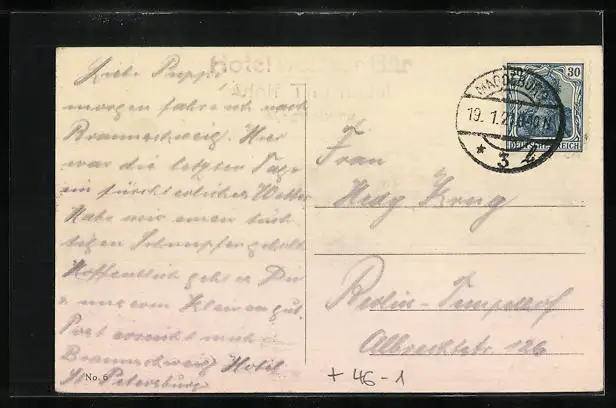 Liebe Puppi
morgen fahre ich nach
Braunschweig. Hier
war die letzten Tage
ein fürchterliches Wetter
Habe mir einen tüch
tigen Schnupfen geholt.
Hoffentlich geht es Dir
u unserm Kleinen gut.
Post erreicht mich
Braunschweig Hotel
St Petersburg
No. 6
Hotel
MAGDEBURG
19. 1. 21
* 3
30
DEUTSCHES REICH
Frau
Hedy Krug
Berlin-Tempelhof
Albrechtstr. 126
+ 46-1